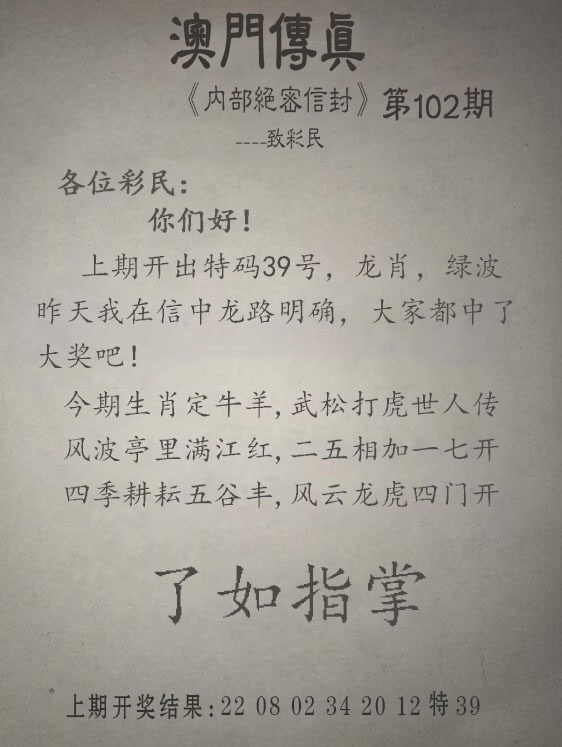 澳門傳眞
《内部絕密信封》第102期
----致彩民
各位彩民：
你们好！
上期开出特码39号，龙肖，绿波
昨天我在信中龙路明确，大家都中了
大奖吧！
今期生肖定牛羊,武松打虎世人传
风波亭里满江红,二五相加一七开
四季耕耘五谷丰,风云龙虎四门开
了如指掌
上期开奖结果:22 08 02 34 20 12特39